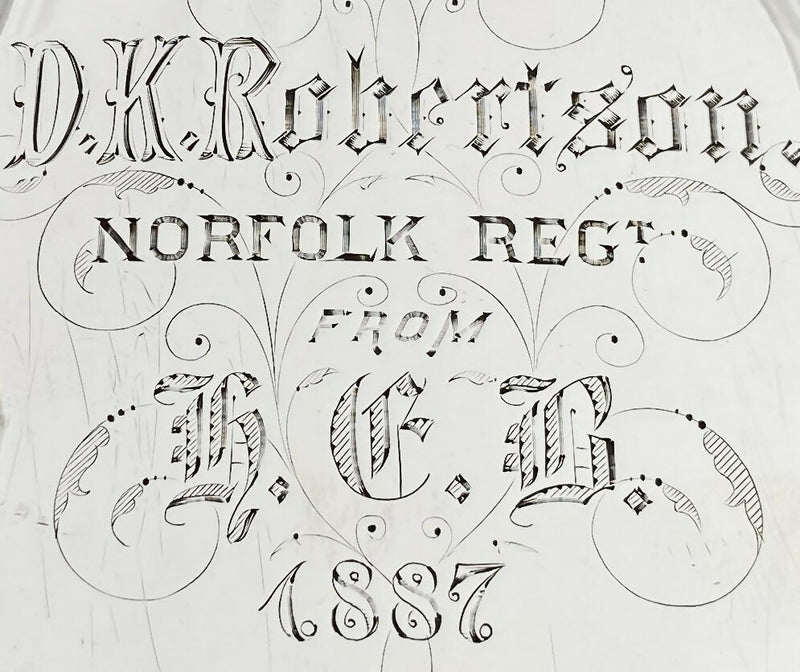 D.K.Robertson.
NORFOLK REGT
FROM
H.E.B.
1887